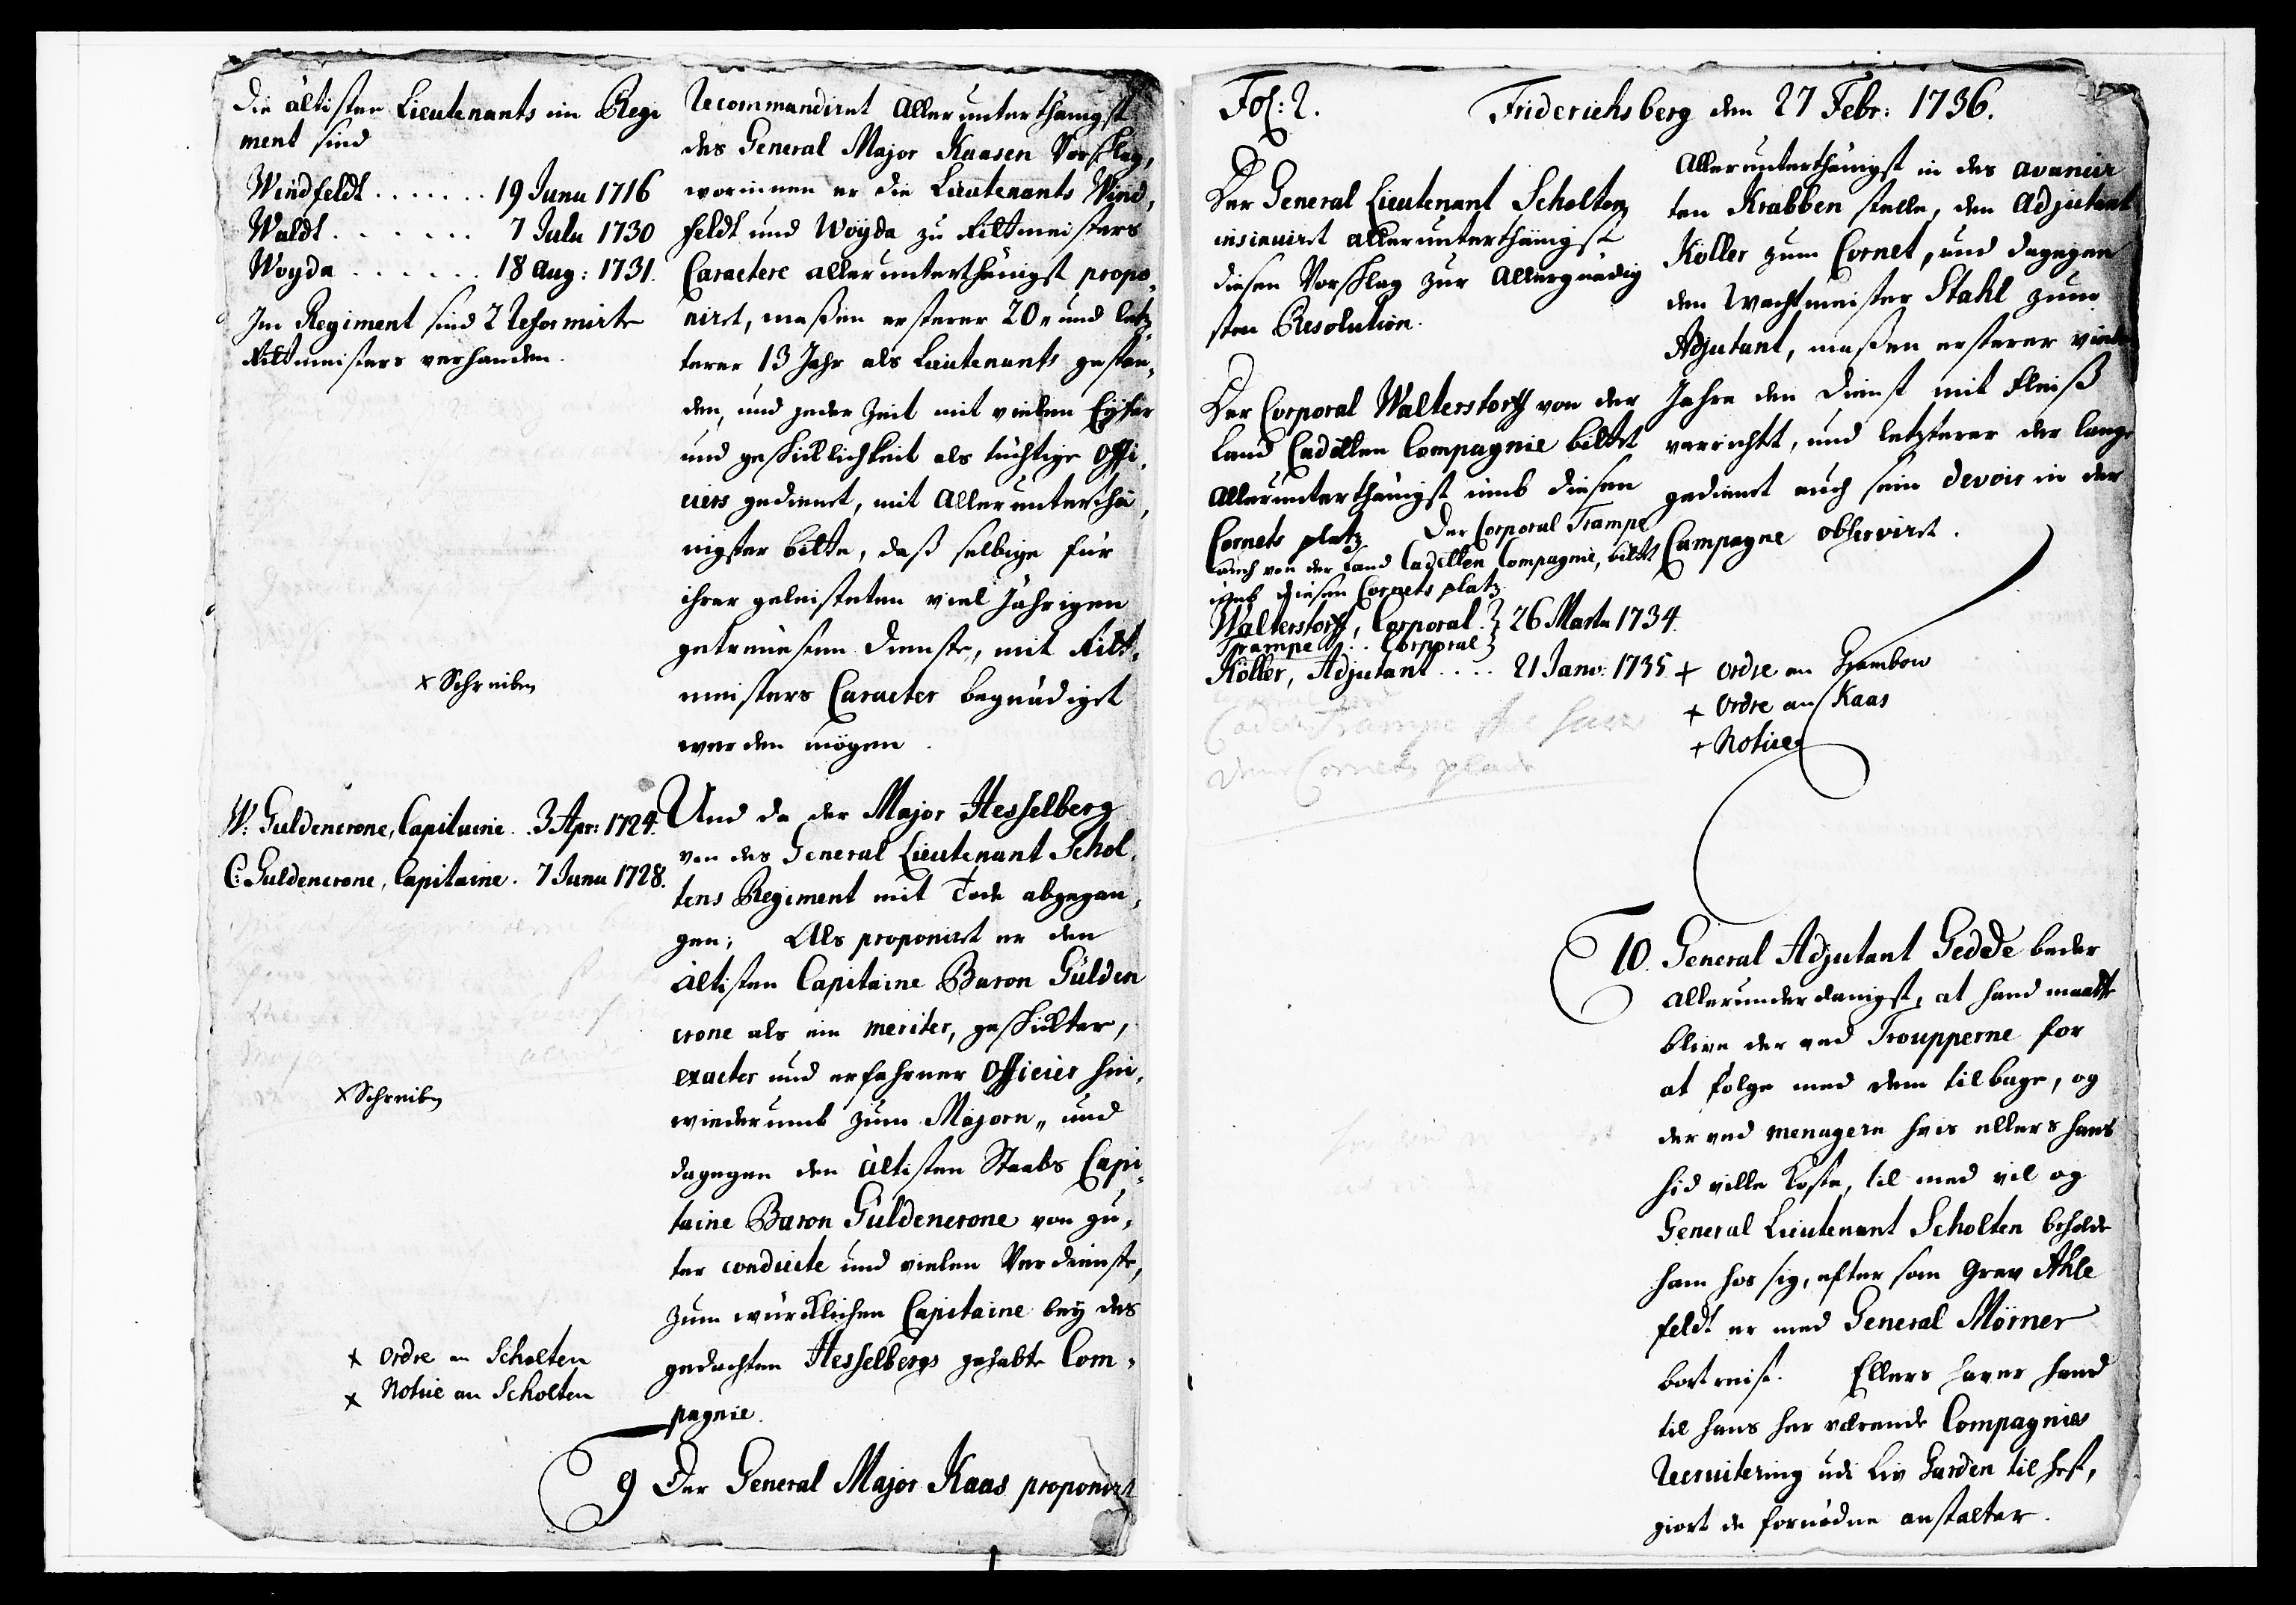 Die ältisten Lieutenants im Regi
ment sind
Windfeldt . . . . . . . 19 Junu 1716
Waldt . . . . . . . 7 Julu 1730
Woyda . . . . . . 18 Aug: 1731.
Im Regiment sind 2 Reformirte
Rittmeisters verhanden.
× Schreiben
W: Guldencrone, Capitaine . 3 Apr: 1724.
C: Guldencrone, Capitaine . 7 Junu 1728.
× Schreiben
× Ordre an Scholten
× Notice an Scholten
Recommandiret Allerunterthänigst
des General Major Kaasen Vorschlag,
worinnen er die Lieutenants Wind,
feldt und Woyda zu Rittmeisters
Caractere allerunterthänigst propo,
niret, maßen ersterer 20 „ und letz,
terer 13 Jahr als Lieutenants gestan,
den, und jeder Zeit mit vielen Eyfer
und geschicklichkeit als tüchtige Offi,
ciers gedienet, mit Allerunterthä,
nigster bitte, daß selbige für
ihrer geleisteten viel Jährigen
getreuesten Dienste, mit Ritt,
meisters Caracter begnädiget
werden mögen.
Und da der Major Hesselberg
von des General Lieutenant Schol,
tens Regiment mit Tode abgegan,
gen; Als proponiret er den
ältisten Capitaine Baron Gülden
crone als ein meriter, geschickter,
exacter und erfahrner Officier hin,
wiederumb zum Majorn „ und
dagegen den ältisten Staabs Capi,
taine Baron Güldencrone von gu,
ter conduite und vielen Verdienste,
zum würcklichen Capitaine bey des
gedachten Hesselbergs gehabte Com,
pagnie.
9 Der General Major Kaas proponirt
Fol: 2. Friderichsberg den 27 Febr: 1736.
Der General Lieutenant Scholten
insinuiret allerunterthänigst
diesen Vorschlag zur Allergnädig
sten Resolution.
Der Corporal Walterstorff von der
Land Cadetten Compagnie bittet
Allerunterthänigst umb diesen
Cornets platz. Der Corporal Trampe
auch von der Land Cadetten Compagnie, bittet
umb diesen Cornets platz.
Walterstorff, Corporal } 26 Martu 1734.
Trampe . . Corporal }
Köller, Adjutant . . . . 21 Janv: 1735.
Trampe
Cornets
Allerunterthänigst in des avancir
ten Krabben stelle, den Adjutant
Köller zum Cornet, und dagegen
den Wachtmeister Stahl zum
Adjutant, maßen ersterer viele
Jahre den Dienst mit Fleiß
verrichtet, und letzterer der lange
gedienet auch sein devoir in der
Campagne observiret.
+ Ordre an Grambow
+ Ordre an Kaas
+ Notice
10. General Adjutant Gedde beder
allerunderdanigst, at hand maatte
blive der ved Troupperne for
at følge med dem tilbage, og
der ved menagere hvis ellers hans
hid ville koste, til med vil og
General Lieutenant Scholten beholde
ham hos sig, efter som Grev Ahle
feldt er med General Mörner
bortreist. Ellers haver hand
til hans her værende Compagnies
Recruitering udi Liv Garden til hest,
giort de fornødne anstalter.